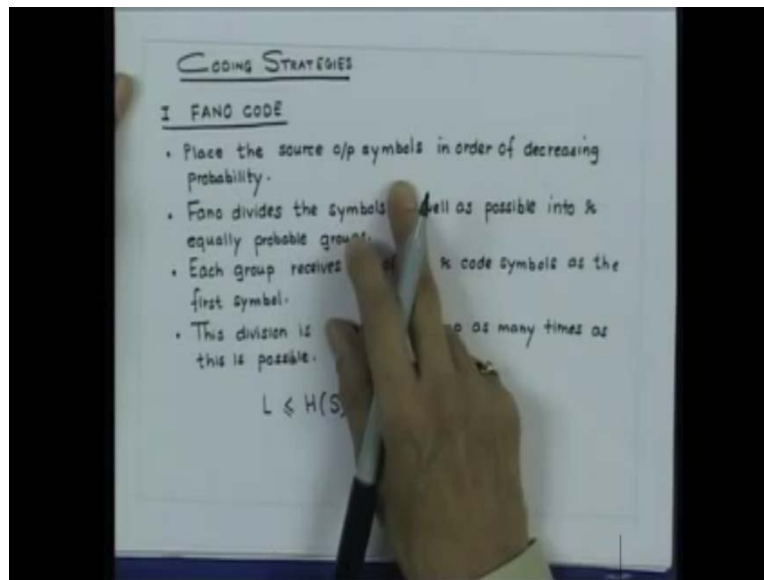 CODING STRATEGIES
I FANO CODE
• Place the source o/p symbols in order of decreasing
probability.
• Fano divides the symbols well as possible into r
equally probable groups.
• Each group receives r code symbols as the
first symbol.
• This division is as many times as
this is possible.
L ⩽ H(S)